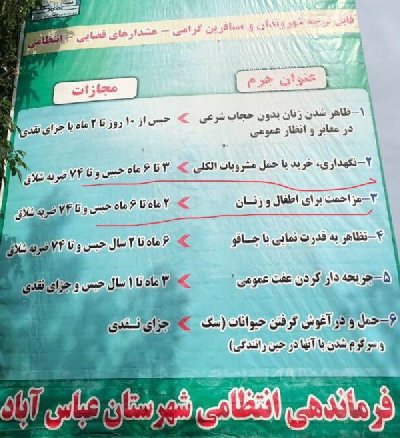 قابل توجه شهروندان و مسافرین گرامی - هشدارهای قضایی - انتظامی
عنوان جرم
مجازات
۱- ظاهر شدن زنان بدون حجاب شرعی
در معابر و انظار عمومی
حبس از ۱۰ روز تا ۲ ماه یا جزای نقدی
۲- نگهداری، خرید یا حمل مشروبات الکلی
۳ تا ۶ ماه حبس و تا ۷۴ ضربه شلاق
۳- مزاحمت برای اطفال و زنان
۲ ماه تا ۶ ماه حبس و تا ۷۴ ضربه شلاق
۴- تظاهر به قدرت نمایی با چاقو
۶ ماه تا ۲ سال حبس و تا ۷۴ ضربه شلاق
۵- جریحه دار کردن عفت عمومی
۳ ماه تا ۱ سال حبس و جزای نقدی
۶- حمل و در آغوش گرفتن حیوانات (سگ
و سرگرم شدن با آنها در حین رانندگی)
جزای نقدی
فرماندهی انتظامی شهرستان عباس آباد